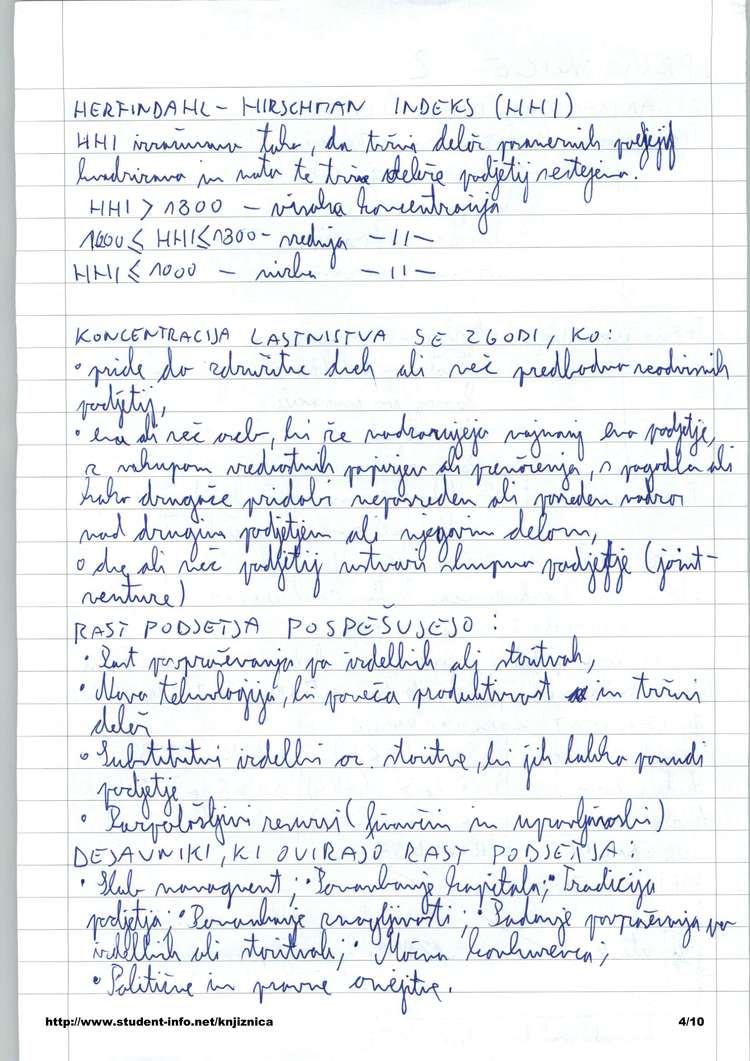 HERFINDAHL - HIRSCHMAN INDEKS (HHI)
HHI izračunamo tako, da tržni delež posameznih podjetij
kvadriramo in nato te tržne deleže podjetij seštejemo.
HHI > 1800 - visoka koncentracija
1000 ≤ HHI ≤ 1800 - srednja -11-
HHI ≤ 1000 - nizka -11-
KONCENTRACIJA LASTNISTVA SE ZGODI, KO:
• pride do združitve dveh ali več predhodno neodvisnih
podjetij,
• ena ali več oseb, ki že nadzorujejo najmanj eno podjetje,
z nakupom vrednostnih papirjev ali premoženja, s pogodbo ali
kako drugače pridobi neposreden ali posreden nadzor
nad drugim podjetjem ali njegovim delom,
• dve ali več podjetij ustvari skupno podjetje (joint-
venture)
RAST PODJETJA POSPEŠUJEJO:
• Rast povpraševanja po izdelkih ali storitvah,
• Nova tehnologija, ki poveča produktivnost in tržni
delež
• Substitutni izdelki oz. storitve, ki jih lahko ponudi
podjetje
• Razpoložljivi resursi (finančni in upravljavski)
DEJAVNIKI, KI OVIRAJO RAST PODJETJA:
• Slab managment; • Pomanjkanje kapitala; • Tradicija
podjetja; • Pomanjkanje zmogljivosti; • Padanje povpraševanja po
izdelkih ali storitvah; • Močna konkurenca;
• Politične in pravne omejitve.
http://www.student-info.net/knjiznica
4/10